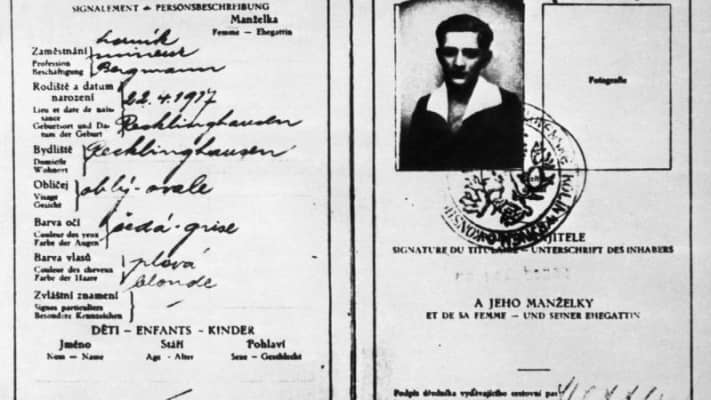 SIGNALEMENT - PERSONSBESCHREIBUNG
Manželka
Femme - Ehegattin
horník
Zaměstnání
mineur
Profession
Beschäftigung
Bergmann
Rodiště a datum
narození
22.4.1917
Lieu et date de nais-
sance
Recklinghausen
Geburtsort und Da-
tum der Geburt
Bydliště
Recklinghausen
Domicile
Wohnort
Obličej
oblý-ovale
Visage
Gesicht
Barva očí
šedá-grise
Couleur des yeux
Farbe der Augen
Barva vlasů
plavá
Couleur des cheveux
blonde
Farbe der Haare
Zvláštní znamení
Signes particuliers
Besondere Kennzeichen
DĚTI - ENFANTS - KINDER
Jméno Stáří Pohlaví
Nom - Name Age - Alter Sexe - Geschlecht
Fotografie
JITELE
SIGNATURE DU TITULAIRE - UNTERSCHRIFT DES INHABERS
A JEHO MANŽELKY
ET DE SA FEMME - UND SEINER EHEGATTIN
Podpis úředníka vydávajícího cestovní pas